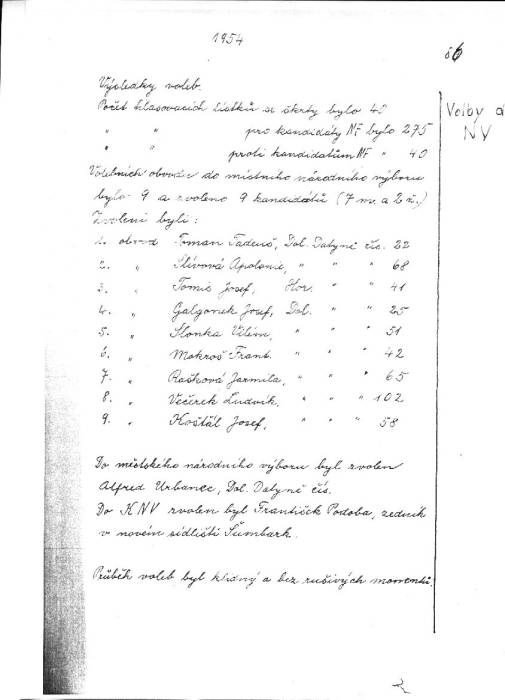 1954
86
Výsledky voleb.
Počet hlasovacích lístků se škrty bylo 40
" " pro kandidáty NF bylo 275
" " proti kandidátům NF " 40
Volebních obvodů do místního národního výboru
bylo 9 a zvoleno 9 kandidátů (7 m. a 2 ž.)
Zvoleni byli:
1. obvod Toman Tadeuš, Dol. Datyně čís. 22
2. " Slívová Apolonie, " " " 68
3. " Tomis Josef, Hor. " " 41
4. " Galgonek Josef, Dol. " " 25
5. " Slonka Vilém, " " " 51
6. " Mokroš Frant. " " " 42
7. " Rašková Jarmila, " " " 65
8. " Večerek Ludvík, " " " 102
9. " Košťál Josef, " " " 58
Do městského národního výboru byl zvolen
Alfred Urbanec, Dol. Datyně čís.
Do KNV zvolen byl František Podoba, zedník
v novém sídlišti Šumbark.
Průběh voleb byl klidný a bez rušivých momentů.
Volby d
NV